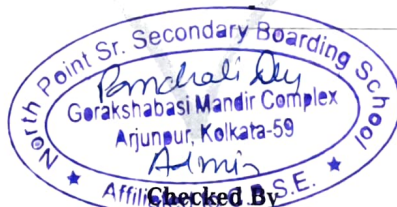 North Point Sr. Secondary Boarding School
Panchali Dey
Gorakshabasi Mandir Complex
Arjunpur, Kolkata-59
Admin
Checked By